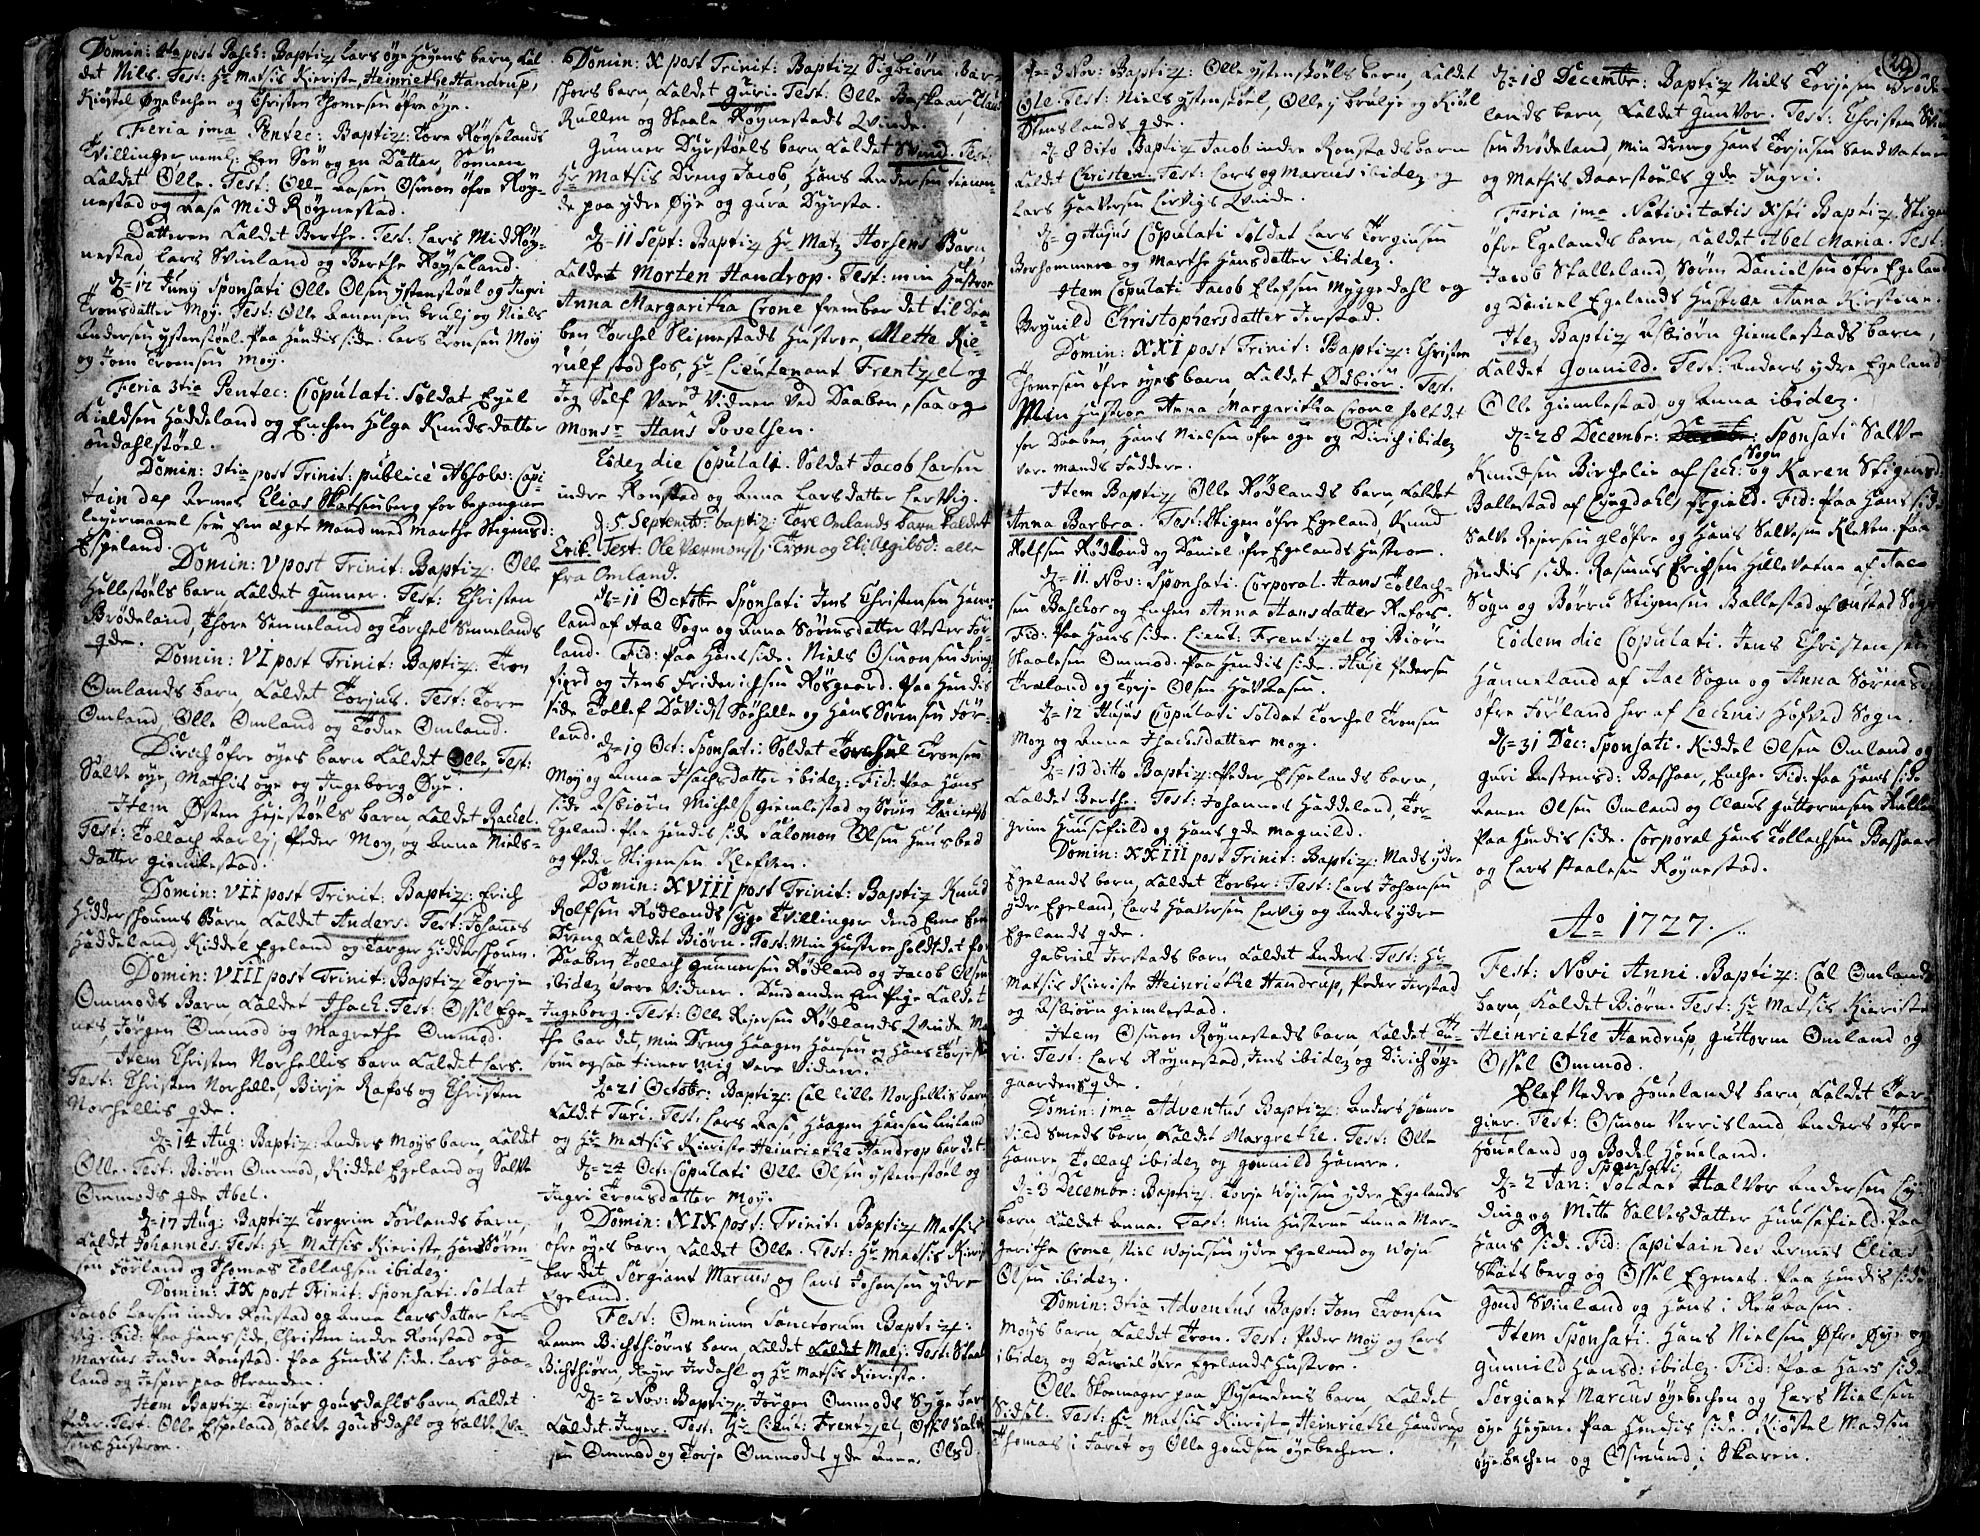 Domin: 4ta post Pasch: Baptiz Lars øye Heyens barn, Kal-
det Nils. Test: Hr Matsis Kieriste, Heinriethe Handrup,
Kiøstel Øyebechen og Christen Thomesen øfre øye.
Feria 1ma Pentec: Baptiz: Tore Røyselands
Tvillinger neml: Een Søn og en Datter, Sønnen
Kaldet Olle. Test: Olle Aasen Osmon øfre Røy-
nestad og Aase Mid Røynestad.
Datteren Kaldet Berthe. Test: Lars Mid Røy-
nestad Lars Svinland og Berthe Røyseland.
D= 12 Juny Sponsati Olle Olsen ystenstøel og Ingri
Tronsdatter Moy. Test: Olle Aanensen brulj og Niels
Andersen ystenstøel. Paa Hendis side. Lars Tronsen Moy
og Joen Tronsen Moy
Feria 3tia Pentec: Copulati. Soldat Eyul
Kieldsen Haddeland og Enchen Helga Knudsdatter
øndahlstøel.
Domin: 3tia post Trinit: publicè Absolv: Capi-
tain des Armes Elias Skatsenberg for begangne
leyermaael som Een Egte Mand med Marthe Stigensd:
Espeland.
Domin: V post Trinit: Baptiz: Olle
Hellestøels barn Kaldet Gunner. Test: Christen
Brødeland, Thore Sinneland og Torchel Sinnelands
qde.
Domin: VI post Trinit: Baptiz: Tron
Omlands barn, Kaldet Torjus. Test: Tore
Omland, Olle Omland og Todne Omland.
Dirich øfre øyes barn Kaldet Olle, Test:
Salve øye, Mathis øye og Ingeborg Øye.
Item Østen Hejestøels barn, Kaldet Rachel.
Test: Tollach Aarlj, Peder Moy, og Anna Niels-
datter Giemlestad.
Domin: VII post Trinit: Baptiz: Erich
Hiddershouns Barn Kaldet Anders. Test: Johanes
Haddeland, Kiddel Egeland og Targer Hiddershouen.
Domin: VIII post Trinit: Baptiz Torje
Ommods Barn, Kaldet Isach. Test: Ossel Ege-
nes, Jørgen Ommod og Magrethe Ommod.
Item Christen Norhellis barn Kaldet Lars.
Test: Christen Norhelle, Birje Rafos og Christen
Norhellis qde.
D= 14 Aug: Baptiz: Anders Moys barn, Kaldet
Olle. Test: Biørn Ommod, Kiddel Egeland og Salve
Ommods qde Abel.
D= 17 Aug: Baptiz Torgrim Førlands barn,
Kaldet Johannes. Test: Hr Matsis Kieriste Hans Søren-
sen Førland og Thomas Tollachsen ibidem.
Domin: IX post Trinit: Sponsati Soldat
Jacob Larsen indre Ronstad og Anna Larsdatter Ler-
vig. Fid: Paa Hans side, Christen indre Ronstad og
Marcus Indre Ronstad. Paa Hendis side. Lars Haa-
land og Jesper paa Stranden.
Item Baptiz Torjus Gonsdahls barn, Kaldet
Peder. Test: Olle Espeland, Salve Gonsdahl og Salve
Hustroe.
Domin: X post Trinit: Baptiz Sigbiørn Bar-
shors barn, Kaldet Guri. Test: Olle Baskaar, Claus
Rullen og Staale Røynestads Qvinde.
Gunner Dyrstøels barn Kaldet Svend. Test:
Hr Matsis Dreng Jacob, Hans Andersen tienen-
de paa ydre Øye og Gura Dyrsta.
D= 11 Sept: Baptiz Hr Matz Horsens Barn
Kaldet Morten Handrop. Test: min Hustroe
Anna Margaritha Crone frembar det til Daa-
ben Torchel Slimestads Hustroe, Mette Kie-
rulf stod hos, Hr Lieutenant Frentzel og
Jeg Self vare Vidner ved Daaben, saa og
Monsr Hans Povelsen.
Eodem die Copulati. Soldat Jacob Larsen
indre Ronstad og Anna Larsdatter Lervig.
d. 5 Septemb: baptiz: Tore Omlands barn kaldet
Erik. Test: Ole Værmons: Tron og Eli Asgilsd: alle
fra Omland.
D= 11 Octobr Sponsati Jens Christensen Hanne-
land af Aae Sogn og Anna Sørensdatter Vester Før-
land. Fid: Paa Hans side. Niels Osmonsen
fiord og Jens Friderichsen Røsgaard. Paa Hendis
side Tollef Davids: Torhelle og Hans Sørensen Før-
land.
D= 19 Oct: Sponsati Soldat Torchel Tronsen
Moy og Anna Isachsdatter ibidem: Fid: Paa Hans
side Asbiørn Michels: Giemlestad og Søren Daniels:
Egeland. Paa Hendis side Salomon Olsen Hunsbed
og Peder Stigensen Kleften.
Domin: XVIII post Trinit: Baptiz Knud
Rolfsen Rødlands syge Tvillinger dend Ene Een
Dreng Kaldet Biørn. Test: Min Hustroe holdt det for
Daaben Tollach Gunnersen Rødland og Jacob Olsen
ibidem vare Vidner. Dend anden Een Pige Kaldet
Ingeborg. Test: Olle Rejersen Rødlands Qvinde Ma-
the bar det, min Dreng Haagen Hansen og Hans Torjesen
som ogsaa tiener mig vare Vidner.
D= 21 Octobr: Baptiz: Cal lille Norhellis barn,
Kaldet Turi. Test: Lars Aase Haagen Hansen Linland
og Hr Matsis Kieriste Heinriethe Handrop bar det.
D= 24 Oct: Copulati Olle Olsen ystenstøel og
Ingri Tronsdatter Moy.
Domin: XIX post: Trinit: Baptiz Mathis
øfre øyes barn, Kaldet Olle. Test: Hr Matsis Kieriste
bar det, Sergiant Marcus og Lars Johansen ydre
Egeland.
Fest: Omnium Sanctorum Baptiz:
Aanen Bichthiørns barn, Kaldet Kaldet Malj. Test: Staale
Bichthiørn, Reyer Irdahl og Hr Matsis Kieriste.
D= 2 Nov: Baptiz, Jørgen Ommods Syge barn
Kaldet Inger. Test: Hr Lieut: Frentzel, Ossel Salve-
sen Ommod og Torje Ommods qde Anne, Olsd.
D= 3 Nov: Baptiz: Olle ystenstøels barn, Kaldet
Ole. Test: Niels ystenstøel, Olle j brulje og Kiøl
Stenslands qde.
D= 8 dito Baptiz Jacob indre Ronstads barn
Kaldet Christen. Test: Lars og Marcus ibidem og
Lars Haaversen Lervigs Qvinde.
D= 9 Hujus Copulati Soldat Lars Torgiusen
Borhommere og Marthe Hansdatter ibidem.
Item Copulati Jacob Elefsen Myggedahl og
Brynild Christophersdatter Jerstad.
Domin: XXI post Trinit: Baptiz: Christen
Thomesen øfre øyes barn, Kaldet Ødbiør. Test:
Min Hustroe Anna Margaritha Crone holt det
for Daaben Hans Nielsen øfre øye og Dirich ibidem
vare mands faddere.
Item Baptiz Olle Rødlands barn, Kaldet
Anna Barbra. Test: Stigen øfre Egeland, Knud
Rolfsen Rødland og Daniel øfre Egelands Hustroe.
D= 11. Nov: Sponsati. Corporal Hans Tollach-
sen Baschor og Enchen Anna Hansdatter Rafos.
Fid: Paa Hans side. Lieut: Frentzel og Biørn
Staalesen Ommod. Paa Hendis side. Aase Pedersen
Træland og Torje Olsen Haabesen.
D= 12 Hujus Copulati Soldat Torchel Tronsen
Moy og Anna Isachsdatter moy.
D= 13 ditto Baptiz: Peder Espelands barn,
Kaldet Berthe. Test: Johannes Haddeland, Tor-
grim Huusefield og Hans qde Magnild.
Domin: XXIII post Trinit: Baptiz: Mads ydre
Egelands barn, Kaldet Torber: Test: Lars Johansen
ydre Egeland, Lars Haaversen Lervig og Anders ydre
Egelands qde.
Gabriel Jerstads barn Kaldet Anders. Test: Hr
Matsis Kieriste Heinriethe Handrup, Peder Jerstad
og Asbiørn Giemlestad.
Item Osmon Røynestads barn Kaldet Tu-
ri. Test: Lars Røynestad, Jens ibidem og Dirich øy-
gaardens qde.
Domin: 1ma Adventus Baptiz: Anders Hamre
vild Smeds barn Kaldet Margrethe. Test: Olle
Hamre, Tollach ibidem og Gonnild Hamre.
D= 3 Decembr: Baptiz: Torje Wojusen ydre Egelands
barn Kaldet Anna. Test: Min Hustrue Anna Mar-
garitha Crone, Niel Wojusen ydre Egeland og Woju
Olsen ibidem.
Domin: 3tia Adventus Bapt: Joen Tronsen
Moys barn, Kaldet Tron. Test: Peder Moy og Lars
ibidem og Daniel øfre Egelands Hustroe.
Olle Skoemager paa Øysandens barn Kaldet
Sidsel. Test: Hr Matsis Kieriste, Heinriethe Handrup
Thomas i Faret og Olle Gondsen øyebechen.
20
D= 18 Decembr: Baptiz Niels Torjesen Brøde-
lands barn, Kaldet Gunvor. Test: Christen
sen Brødeland, Min Dreng Hans Torjusen Sandvatnet
og Mathis Baarstøels qde Ingri.
Feria 1ma Nativitatis Xsti Baptiz Stigen
øfre Egelands barn, Kaldet Abel Maria. Test:
Jacob Skalleland, Søren Danielsen øfre Egeland
og Daniel Egelands Hustroe Anna Kirstine.
Item Baptiz Asbiørn Giemlestads barn,
Kaldet Gonnild. Test: Anders ydre Egeland
Olle Giemlestad, og Anna ibidem.
D= 28 Decembr: Decembr: Sponsati Salve
Knudsen Birchelie af Lech: Sogn og Karen Stigensd:
Ballestad af Lyngdahls Præstegield. Fid: Paa Hans side
Salve Rejersen Gløfre og Hans Salvesen Kleven. Paa
Hendis side. Rasmus Erichsen Hillevatne af Aae
Sogn og Børru Stigensen Ballestad af Austad Sogn
Eodem die Copulati. Jens Christensen
Hanneland af Aae Sogn og Anna Sørensd:
øfre Førland her af Lechnis Hofved Sogn.
D= 31 Dec: Sponsati. Kiddel Olsen Omland og
Guri Andersd: Baschaar, Enche. Fid: Paa Hans side
Aanen Olsen Omland og Claus Guttormsen Rullen
Paa Hendis side. Corporal Hans Tollachsen Baschaar
og Lars Staalesen Røynestad.
Ao 1727.
Fest: Novi Anni. Baptiz: Cal Omlands
barn, Kaldet Biørn. Test: Hr Matsis Kieriste
Heinriethe Handrup, Guttorm Omland og
Ossel Ommod.
Elef Nedre Houelands barn, Kaldet Tar-
gier. Test: Osmon Verrisland, Anders øfre
Houeland og Bodel Houeland.
D= 2 Jan: Sponsati Soldat Halvor Andersen Ly-
ding og Mette Salvesdatter Huusefield. Paa
Hans side. Fid: Capitain des Armes Elias
Skatsberg og Ossel Egenes. Paa Hendis side
Gond Svinland og Hans i Rekkasen.
Item Sponsati. Hans Nielsen Øfre Øye og
Gunnild Hansd: ibidem. Fid: Paa Hans side
Sergiant Marcus øyebechen og Lars Nielsen
øye Heyen. Paa Hendis side. Kiøstel Madsen
øyebechen og Osmund i Skaren.